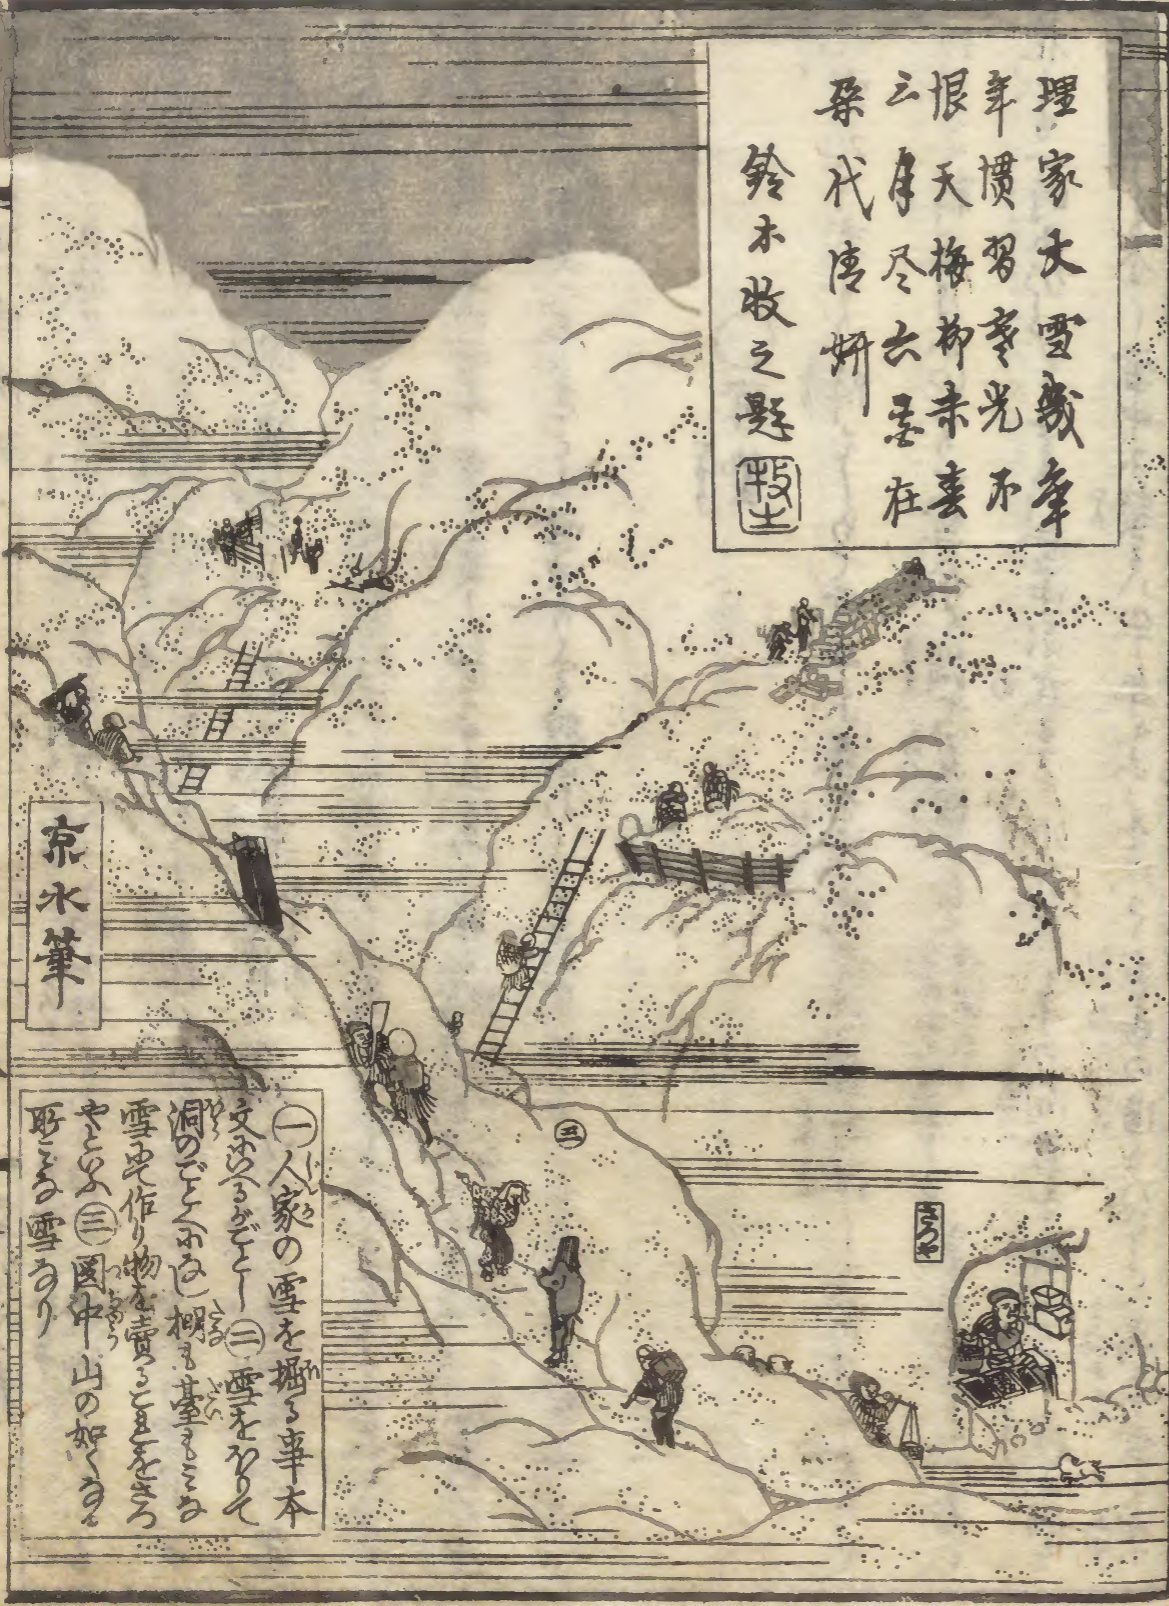 埋家大雪幾年
年慣習寒光不
恨天梅柳未春
三月尽六花在
朶代清妍
鈴木牧之題
牧之
京水筆
㊂
さつや
㊀人家の雪を掘る事本
文にいへるがごとし㊁雪をほりて
洞のごとくになし棚も臺もみな
雪にて作り物を賣るこれをさつ
やといふ㊂図中山の如くなる
所みな雪なり